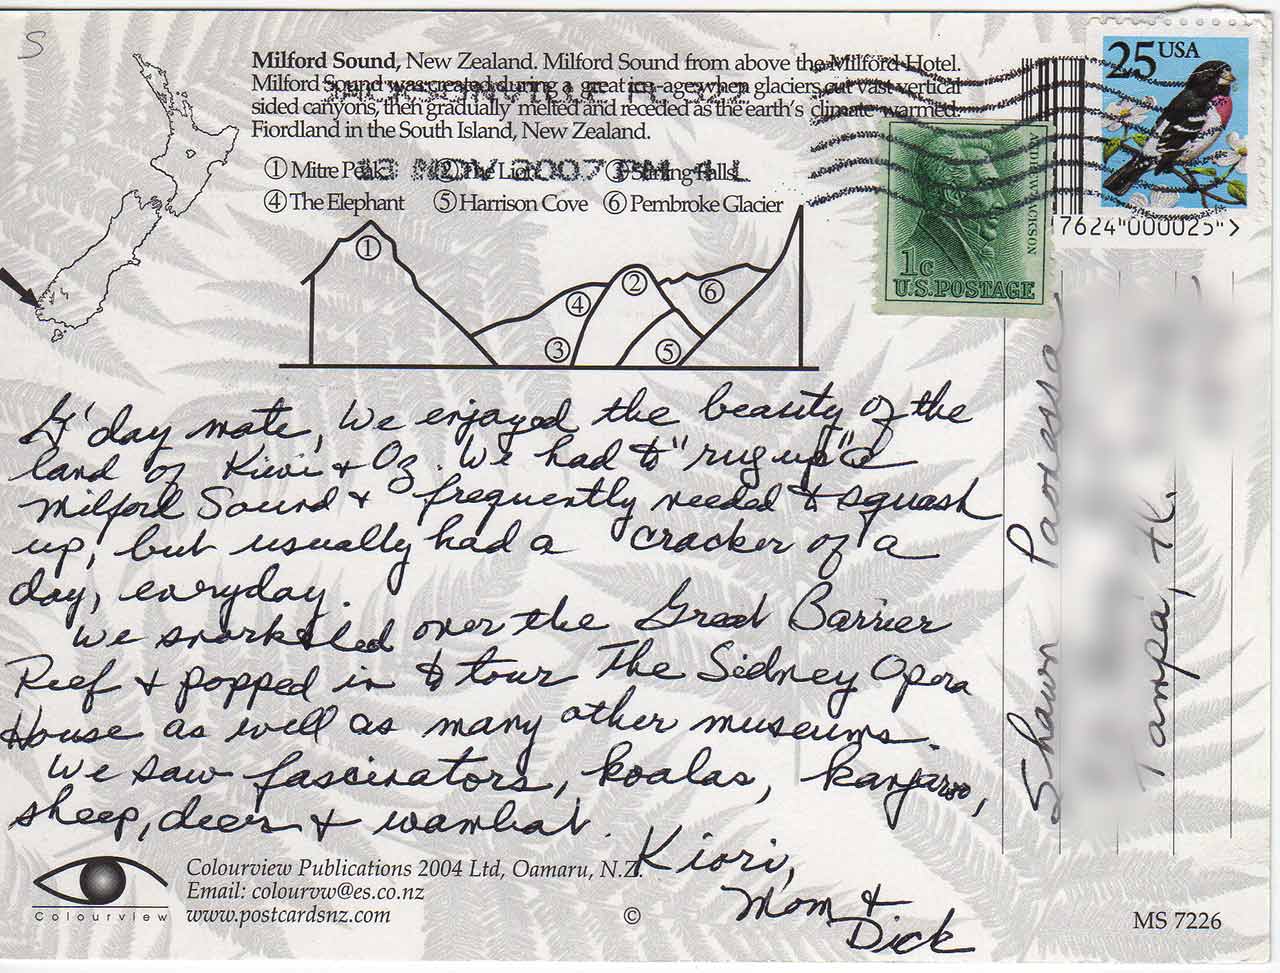 S
Milford Sound, New Zealand. Milford Sound from above the Milford Hotel.
Milford Sound was created during a great ice-age when glaciers cut vast vertical
sided canyons, then gradually melted and receded as the earth's climate warmed.
Fiordland in the South Island, New Zealand.
13 NOV 2007 PM 4 L
① Mitre Peak ② The Lion ③ Stirling Falls
④ The Elephant ⑤ Harrison Cove ⑥ Pembroke Glacier
①
②
④
⑥
③
⑤
25 USA
ANDREW JACKSON
1c
U.S. POSTAGE
7624"000025">
G'day mate, We enjoyed the beauty of the
land of Kiwi & Oz. We had to "rug up" @
Milford Sound & frequently needed to squash
up, but usually had a cracker of a
day, everyday.
We snorkeled over the Great Barrier
Reef & popped in to tour The Sidney Opera
House as well as many other museums.
We saw fascinators, koalas, kangaroo,
sheep, deer & wambat.
Kiori,
Mom &
Dick
Shawn
Tampa, FL.
Colourview
Colourview Publications 2004 Ltd, Oamaru, N.Z.
Email: colourvw@es.co.nz
www.postcardsnz.com
©
MS 7226